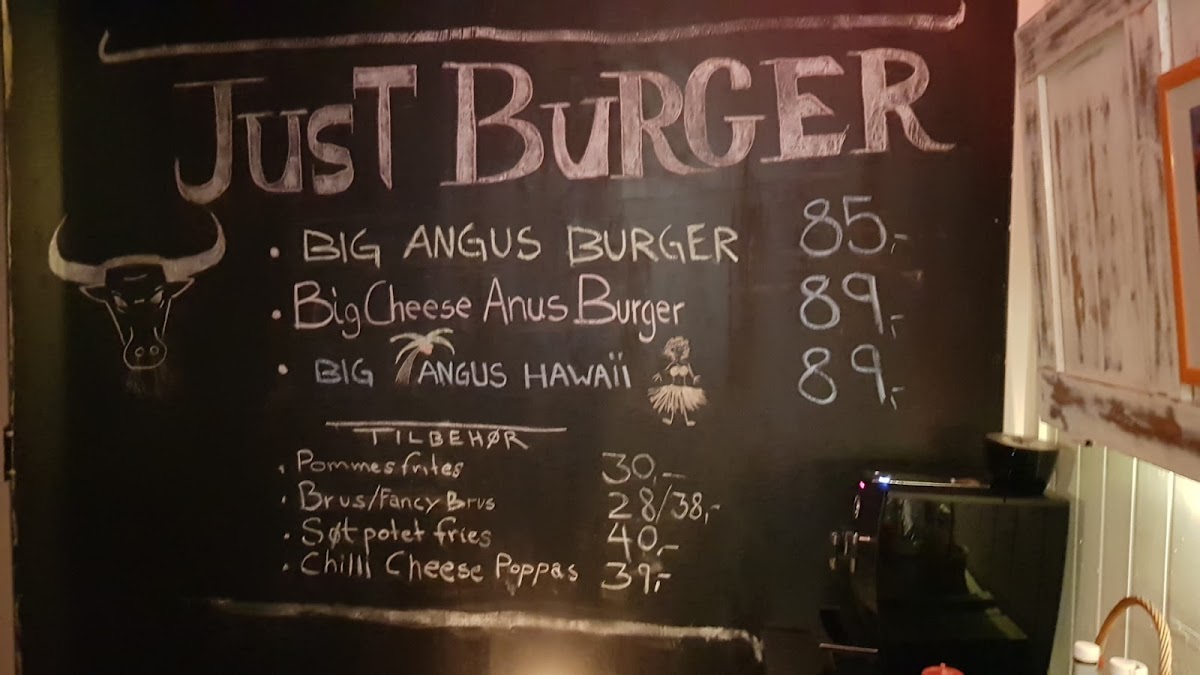 JUST BURGER
• BIG ANGUS BURGER 85,-
• Big Cheese Anus Burger 89,-
• BIG ANGUS HAWAÏI 89,-
TILBEHØR
• Pommes frites 30,-
• Brus/Fancy Brus 28/38,-
• Søtpotet fries 40,-
• Chilli Cheese Poppas 39,-